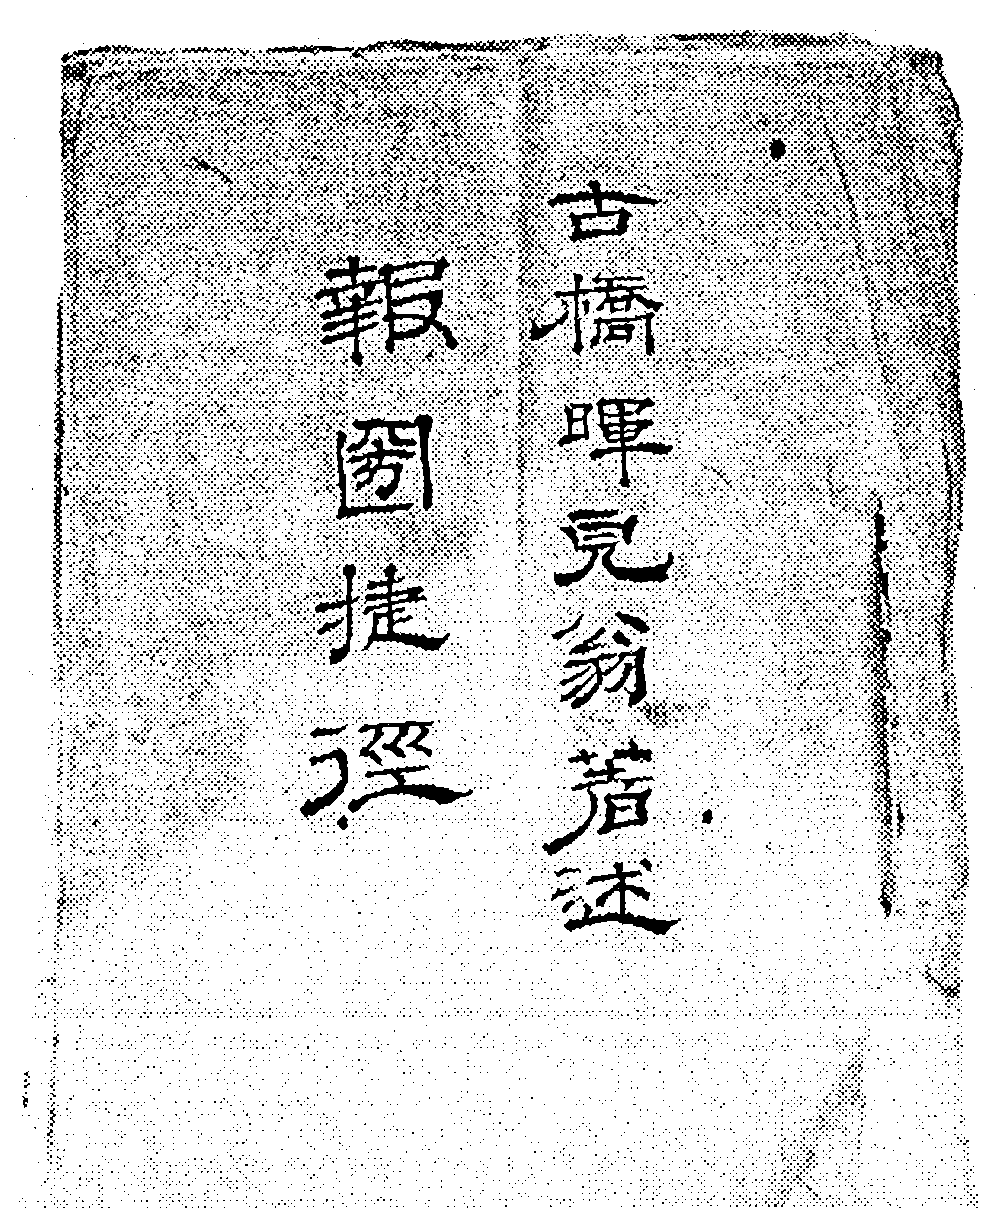 古橋暉皃翁著述
報圀捷徑